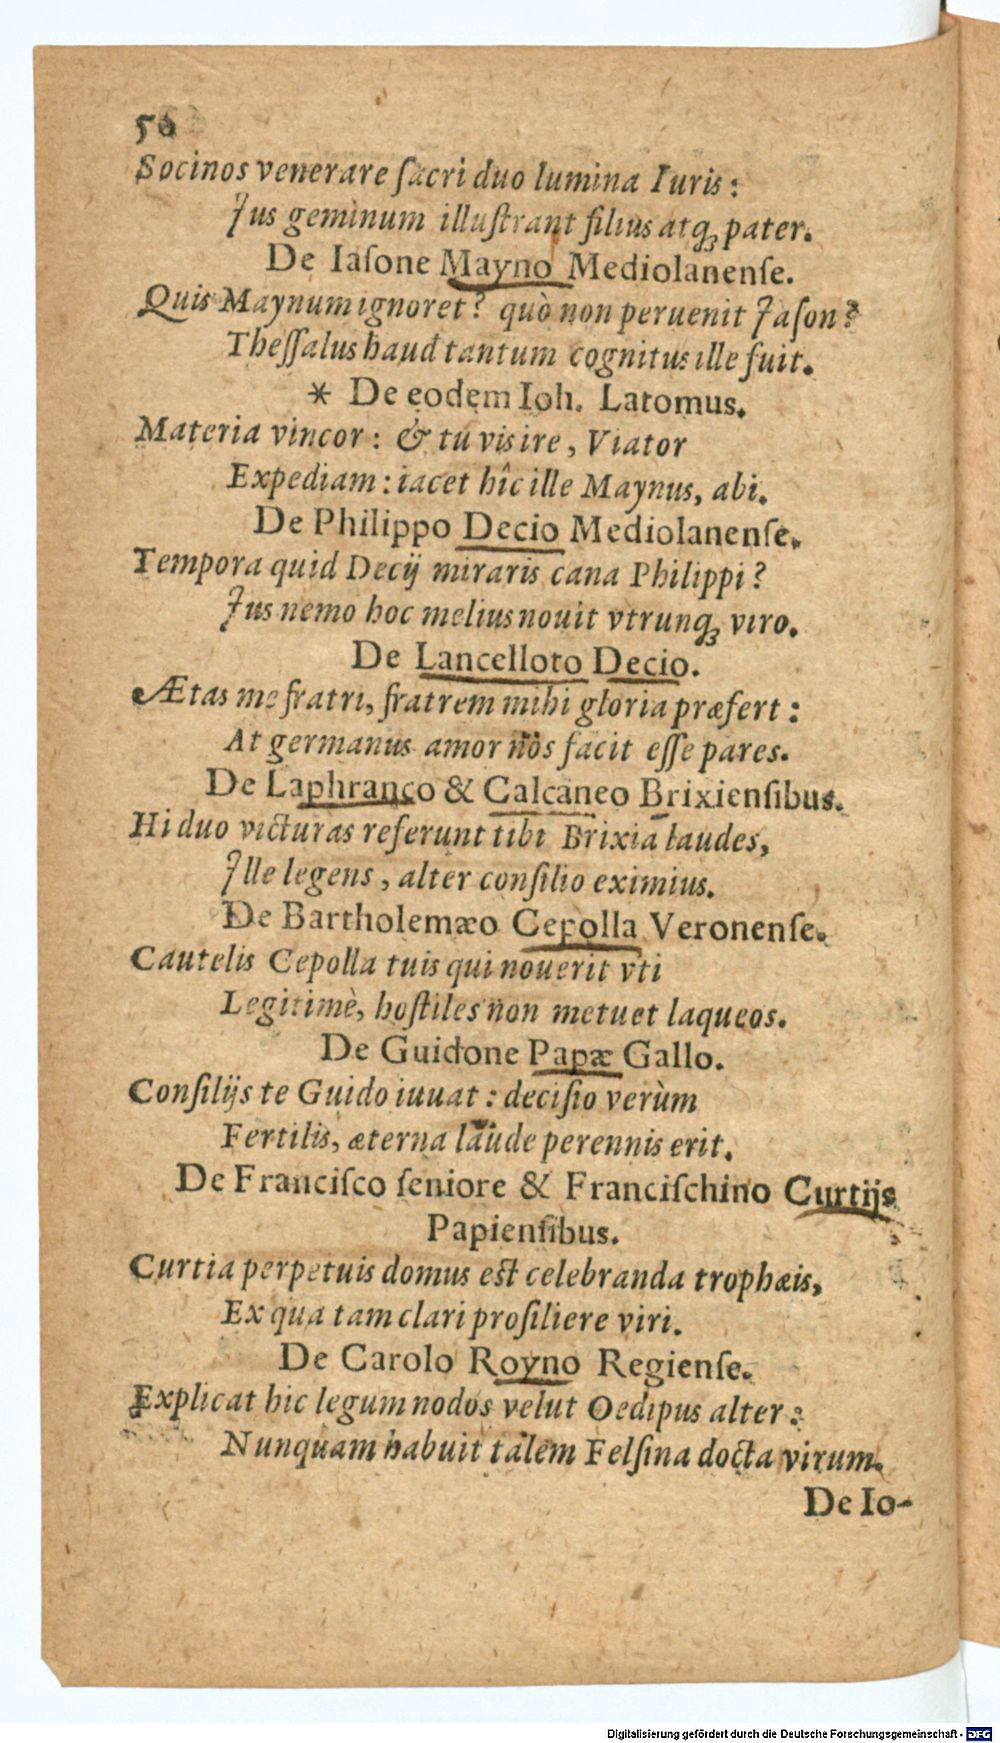 56
Socinos venerare ſacri duo lumina Iuris:
Jus geminum illuſtrant filius atq; pater.
De Iaſone Mayno Mediolanenſe.
Quis Maynum ignoret? quò non peruenit Jaſon?
Theſſalus haud tantum cognitus ille fuit.
* De eodem Ioh. Latomus.
Materia vincor: & tu vis ire, Viator
Expediam: iacet hîc ille Maynus, abi.
De Philippo Decio Mediolanenſe.
Tempora quid Decij miraris cana Philippi?
Jus nemo hoc melius nouit vtrunq; viro.
De Lancelloto Decio.
Ætas me fratri, fratrem mihi gloria præfert:
At germanus amor nos facit eſſe pares.
De Laphranco & Calcaneo Brixienſibus.
Hi duo victuras referunt tibi Brixia laudes,
Ille legens, alter conſilio eximius.
De Bartholemæo Cepolla Veronenſe.
Cautelis Cepolla tuis qui nouerit vti
Legitimè, hoſtiles non metuet laqueos.
De Guidone Papæ Gallo.
Conſilijs te Guido iuuat: deciſio verùm
Fertilis, æterna laude perennis erit.
De Franciſco ſeniore & Franciſchino Curtijs
Papienſibus.
Curtia perpetuis domus est celebranda trophæis,
Ex qua tam clari proſiliere viri.
De Carolo Royno Regienſe.
Explicat hic legum nodos velut Oedipus alter:
Nunquam habuit talem Felſina docta virum.
De Io-
Digitalisierung gefördert durch die Deutsche Forschungsgemeinschaft - DFG